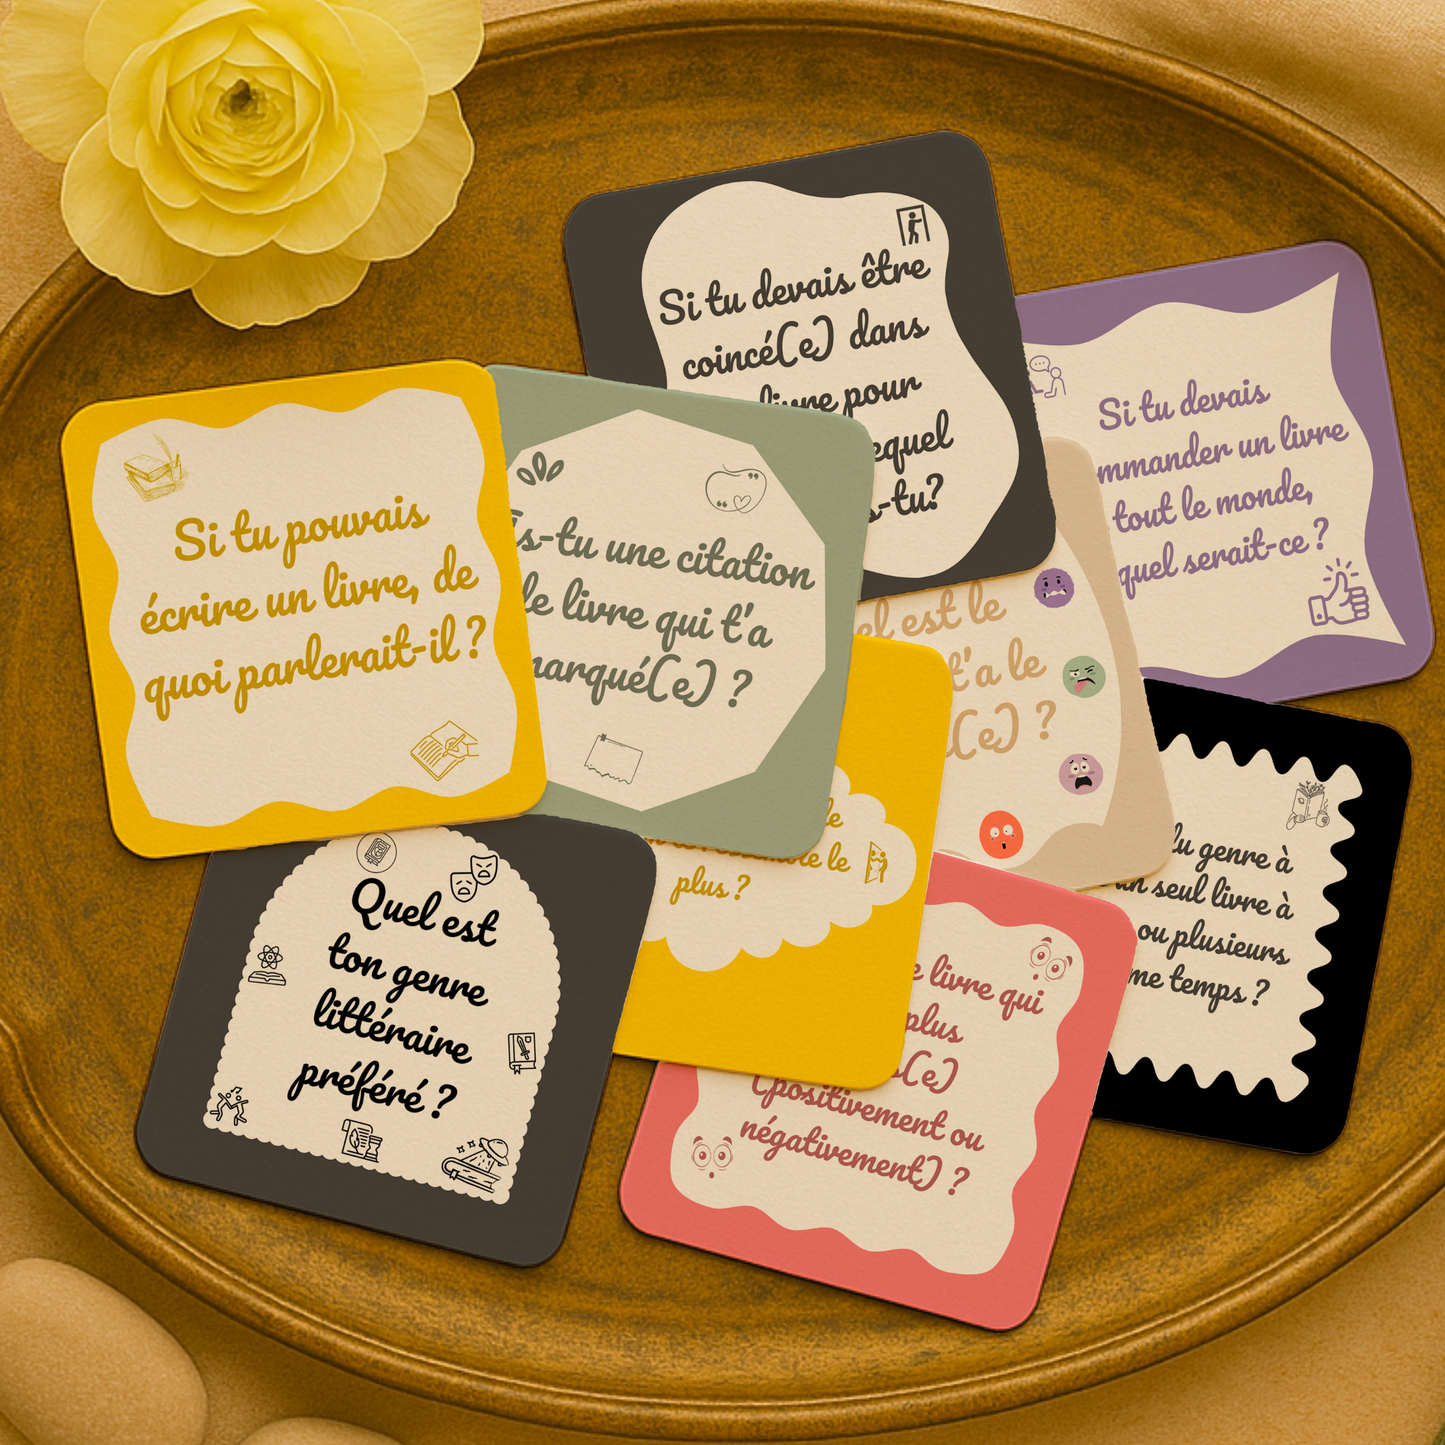 Si tu devais être
coincé(e) dans
livre pour
-tu?
Si tu devais
un livre
tout le monde,
quel serait-ce ?
Si tu pouvais
écrire un livre, de
quoi parlerait-il ?
-tu une citation
de livre qui t'a
marqué(e) ?
est le
t'a le
(e) ?
le
plus ?
genre à
un seul livre à
ou plusieurs
temps ?
Quel est
ton genre
littéraire
préféré ?
livre qui
plus
(e)
(positivement ou
négativement) ?